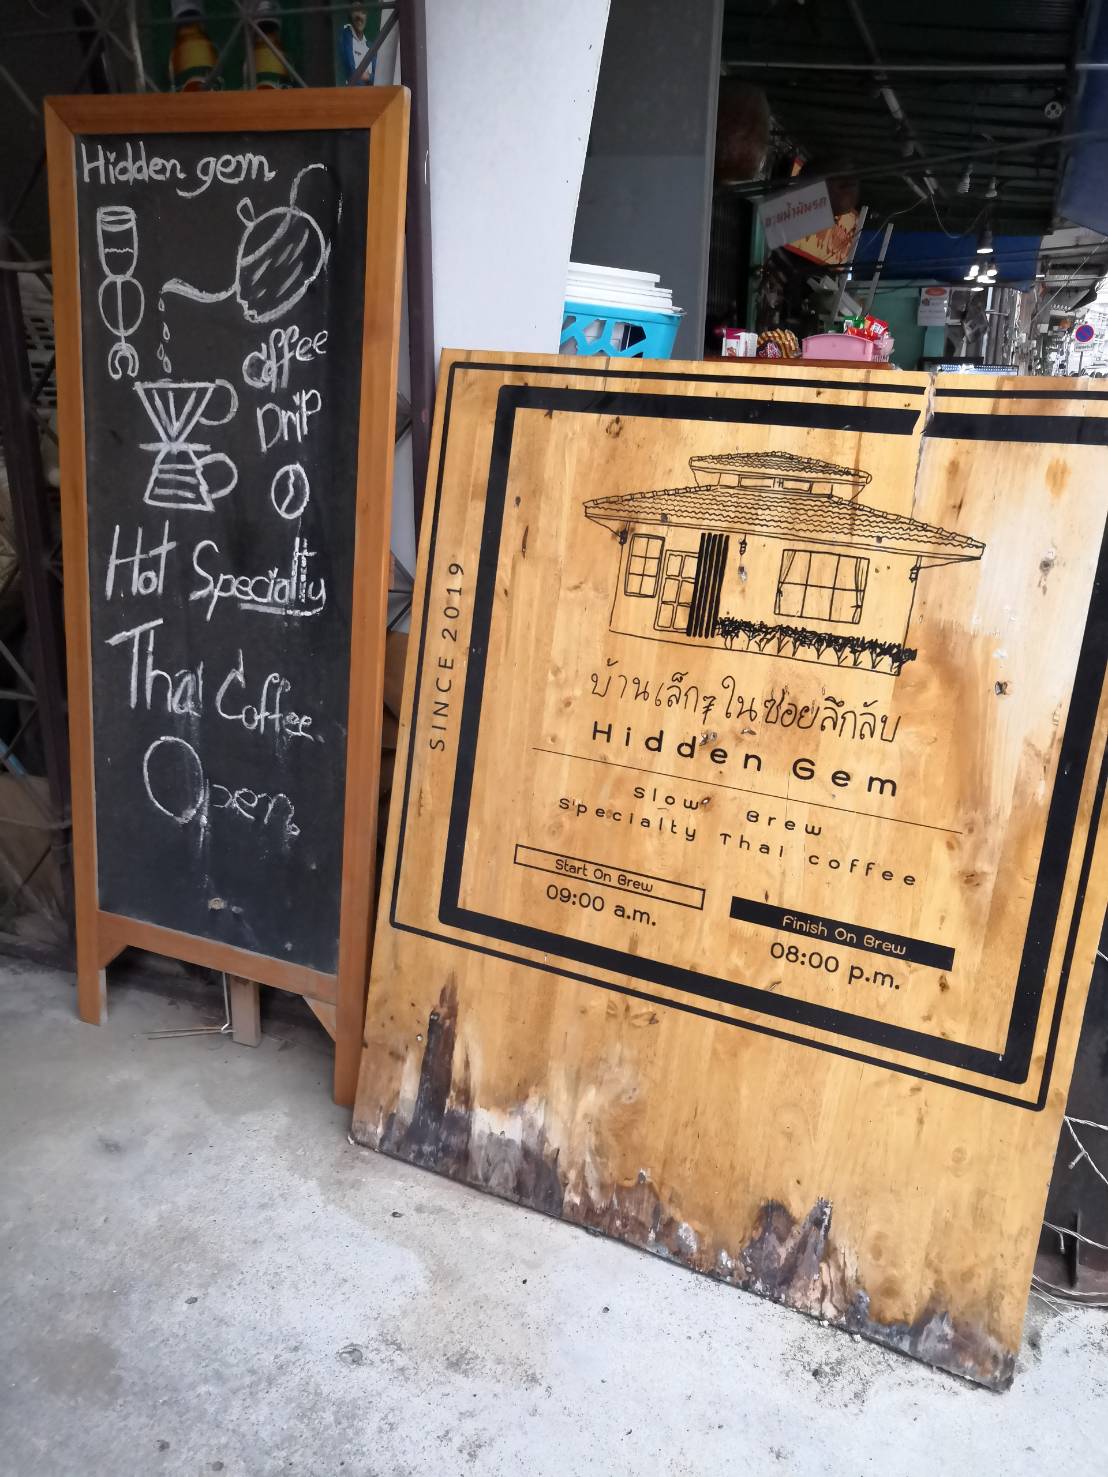 Hidden gem
Coffee
Drip
Hot Specialty
Thai Coffee
Open
SINCE 2019
บ้านเล็กๆ ในซอยลึกลับ
Hidden Gem
Slow Brew
Specialty Thai coffee
Start On Brew
09:00 a.m.
Finish On Brew
08:00 p.m.
ขายน้ำมันรถ